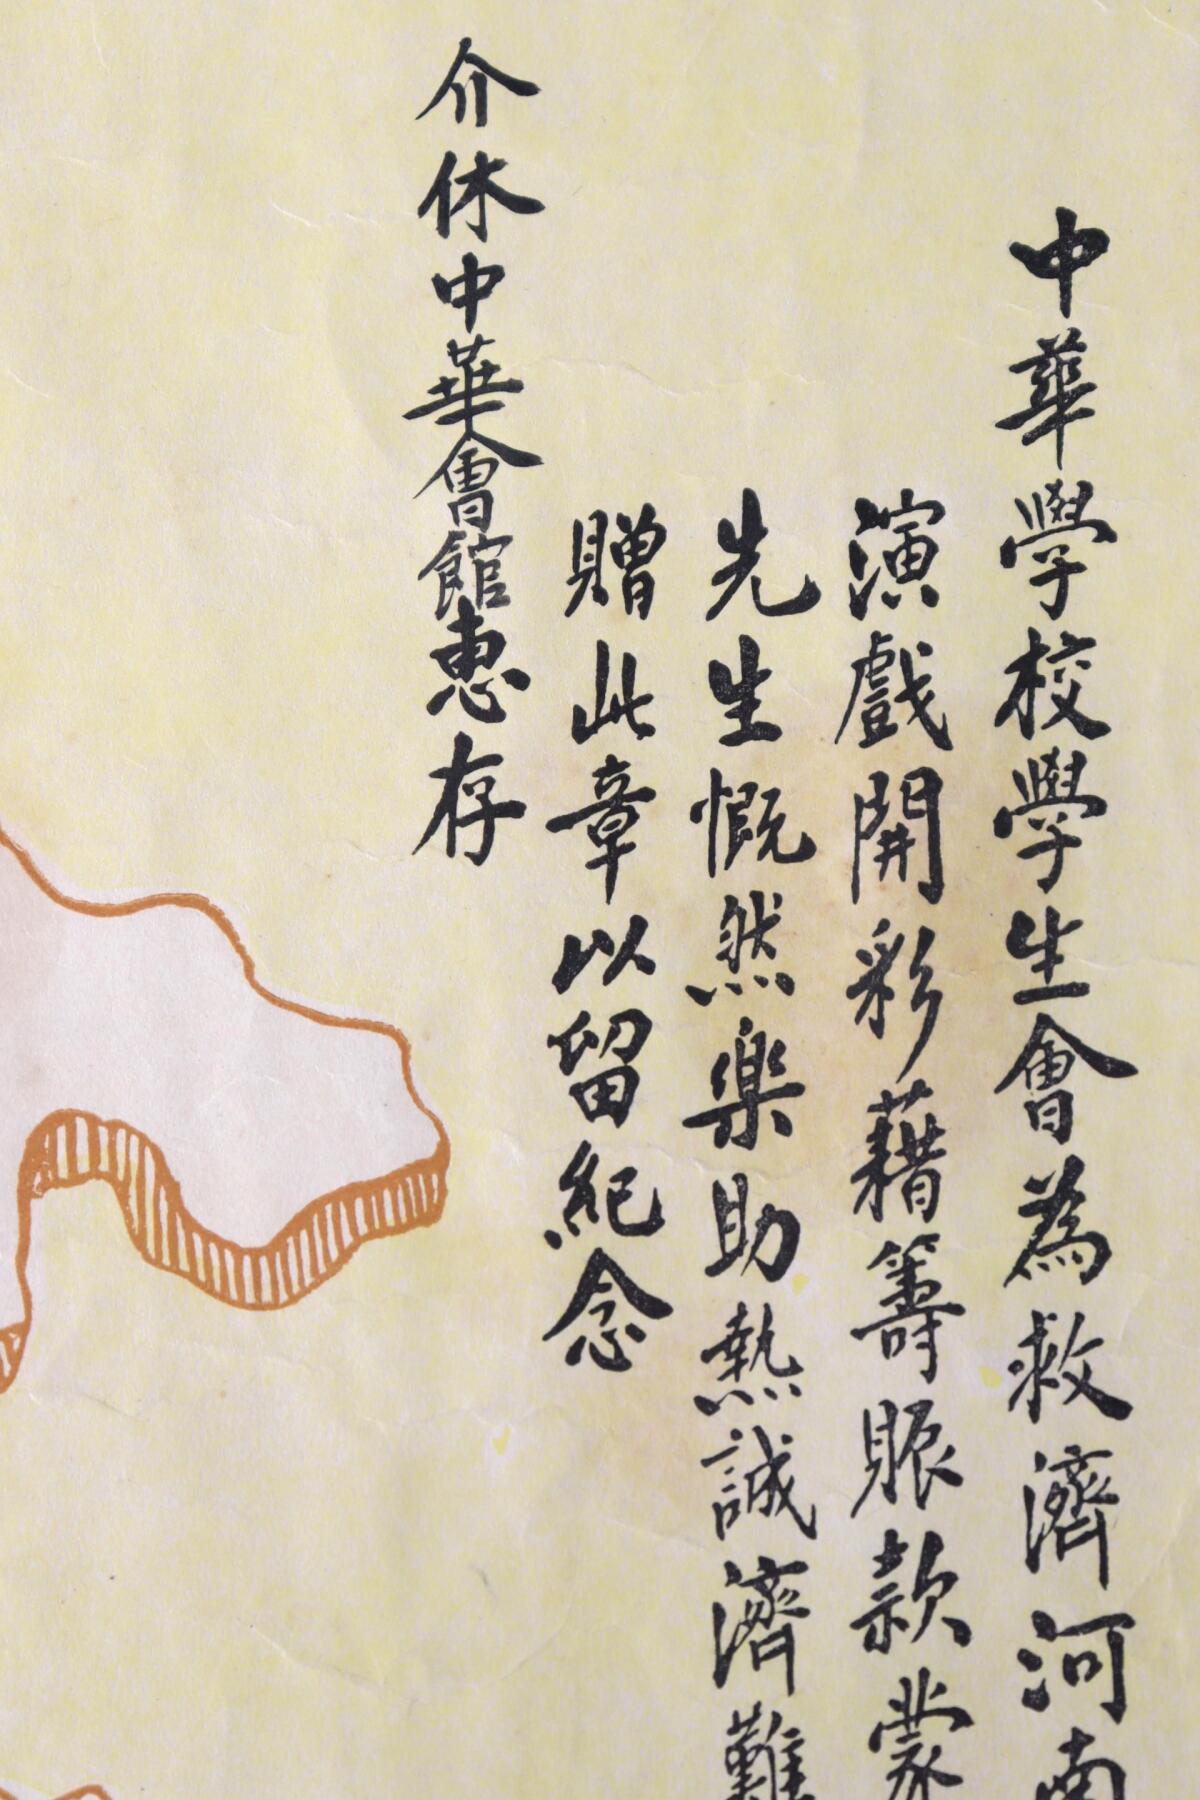 中華學校學生會為救濟河南
演戲開彩藉籌賑款蒙
先生慨然樂助熱誠濟難
贈此章以留紀念
介休中華會館惠存